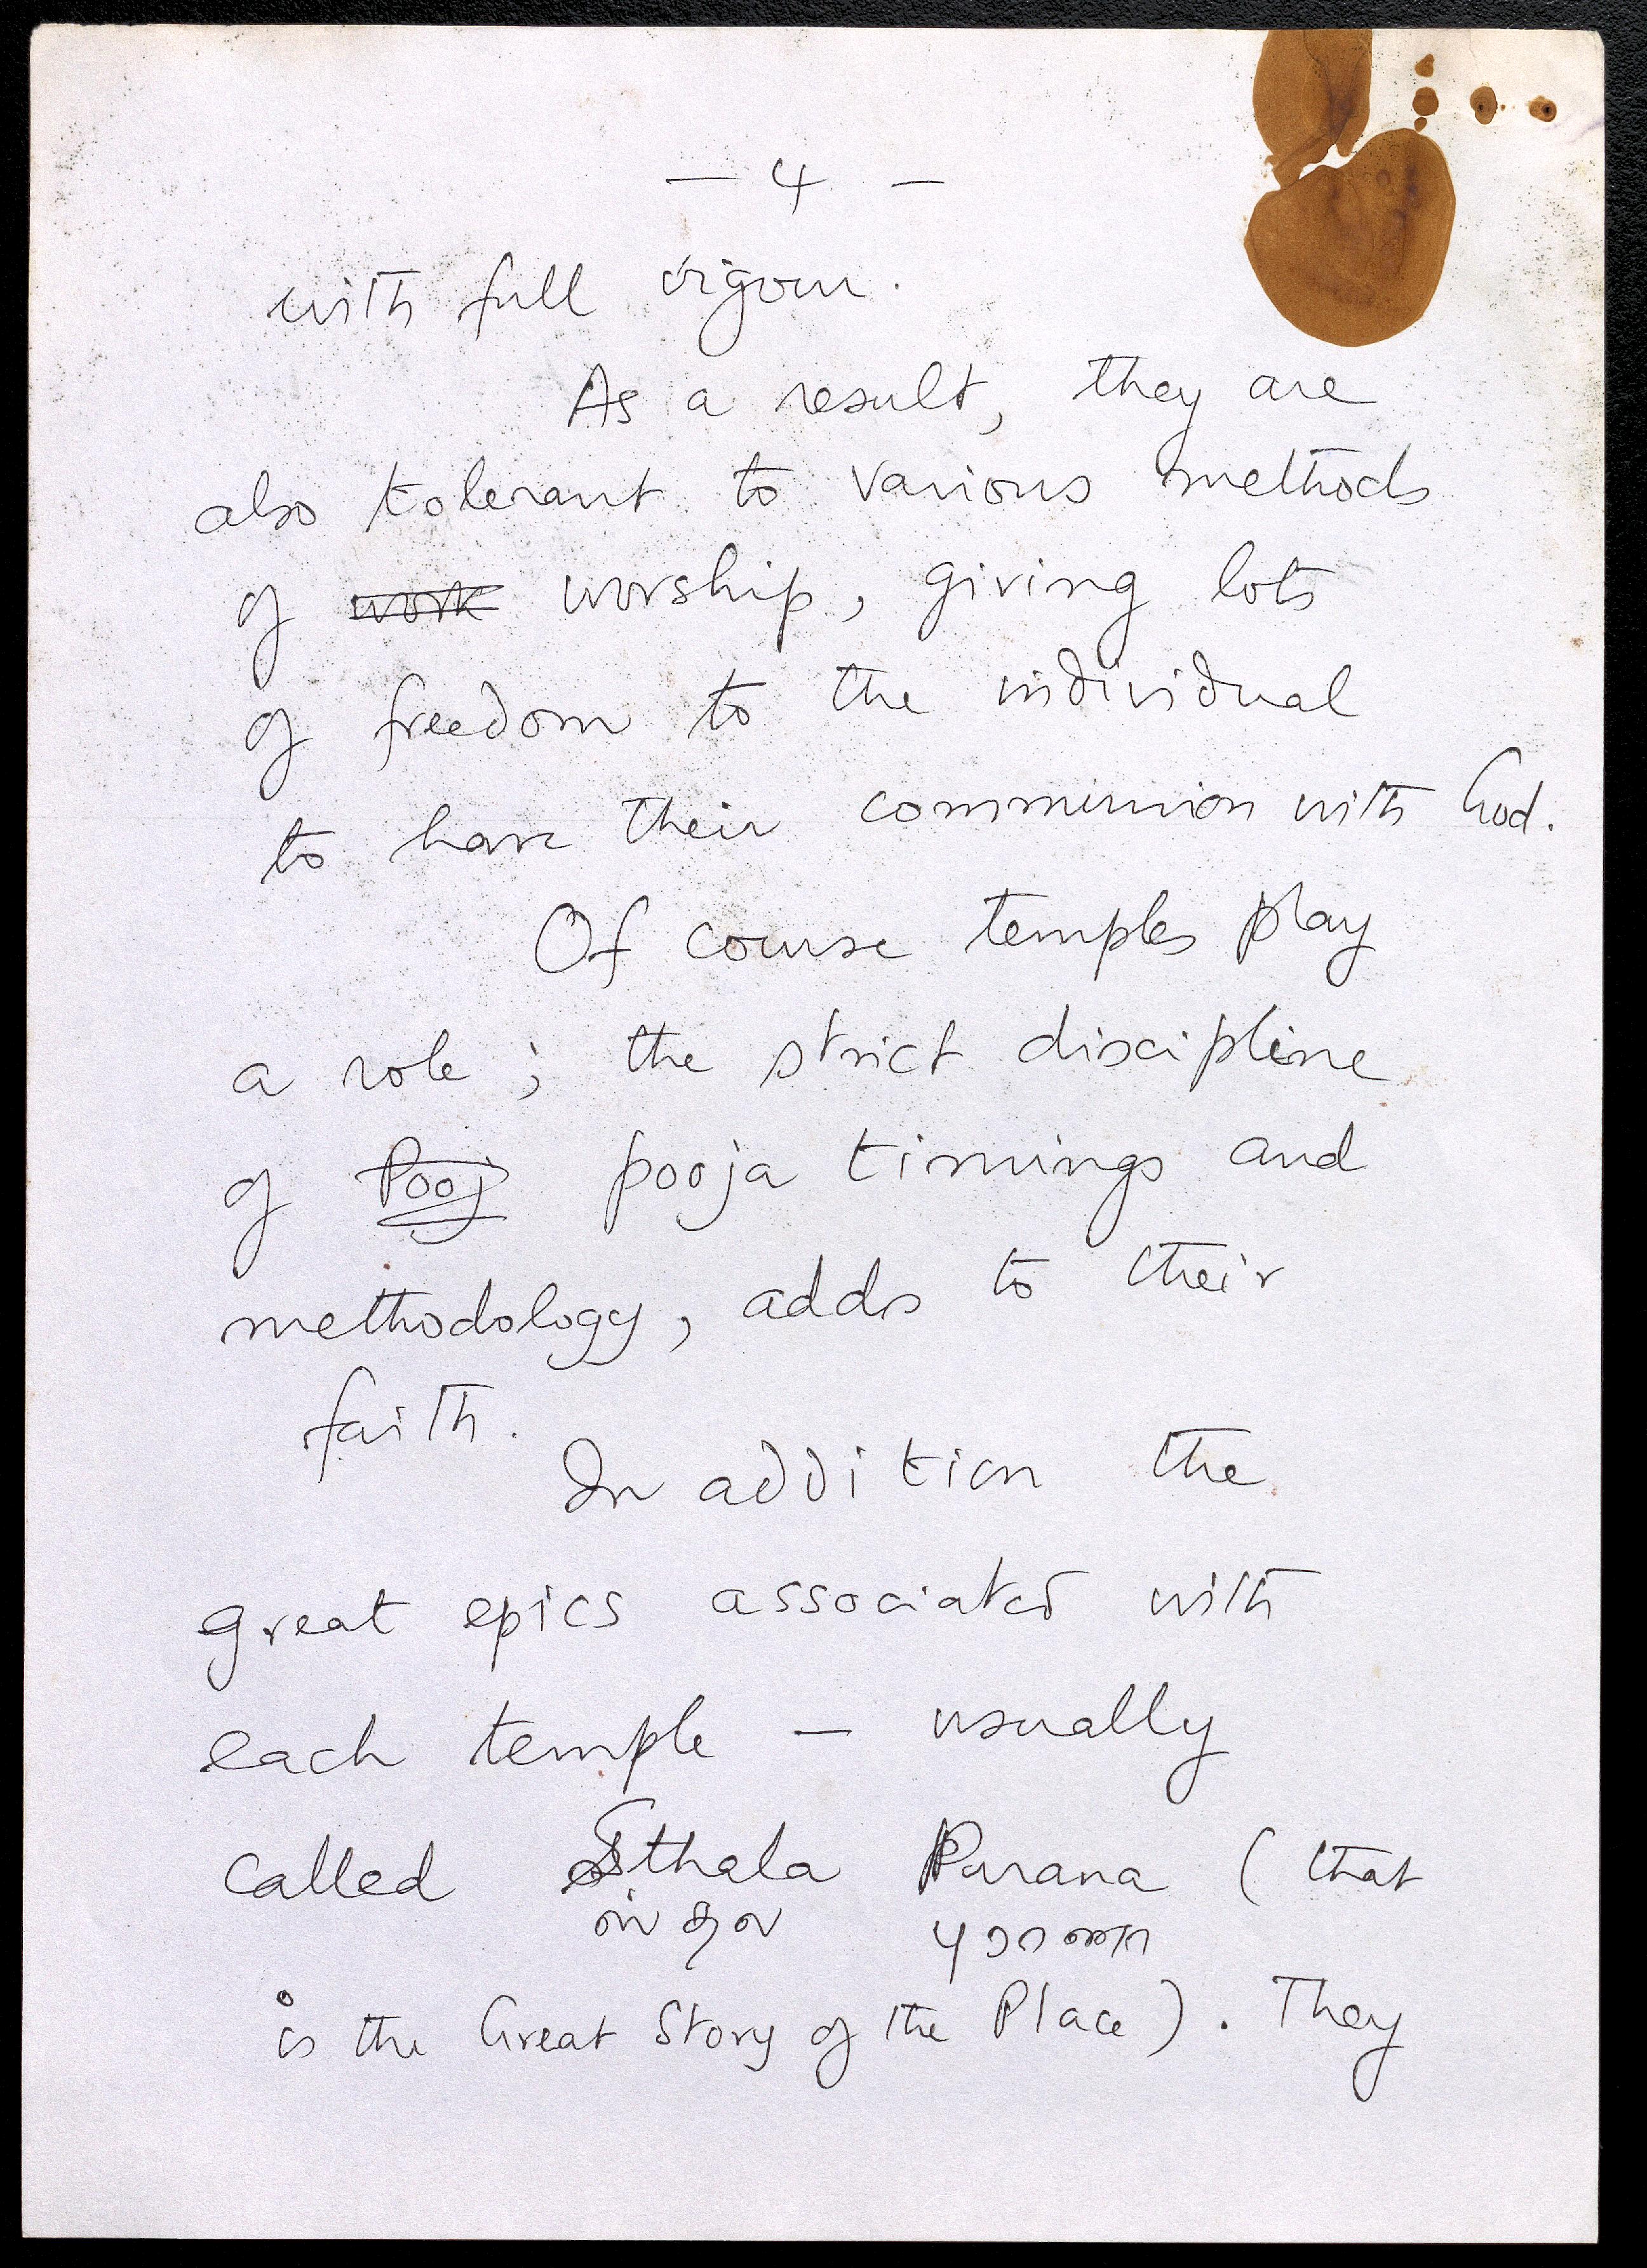 — 4 —
with full vigour.
As a result, they are
also tolerant to various methods
of ~~work~~ worship, giving lots
of freedom to the individual
to have their communion with God.
Of course temples play
a role; the strict discipline
of ~~Pooj~~ pooja timings and
methodology, adds to their
faith.
In addition the
great epics associated with
each temple — usually
called Sthala Purana (that
is the Great Story of the Place). They